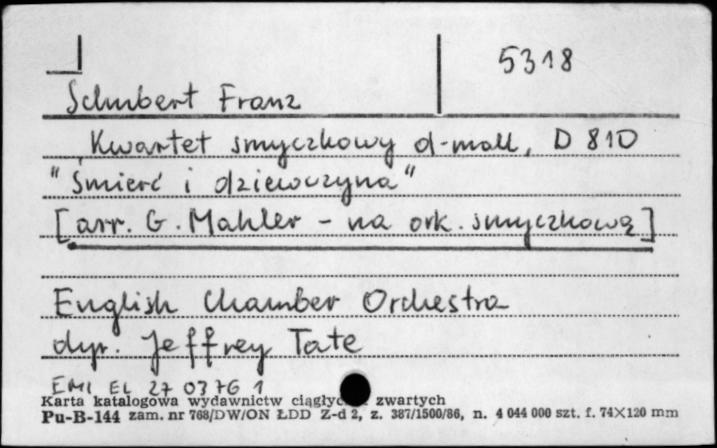 5318
Schubert Franz
Kwartet smyczkowy d-moll, D 810
"Śmierć i dziewczyna"
[arr. G. Mahler - na ork. smyczkową]
English Chamber Orchestra
dyr. Jeffrey Tate
EMI EL 27 0376 1
Karta katalogowa wydawnictw zwartych
Pu-B-144 zam. nr 768/DW/ON ŁDD Z-d 2, z. 387/1500/86, n. 4 044 000 szt. f. 74×120 mm